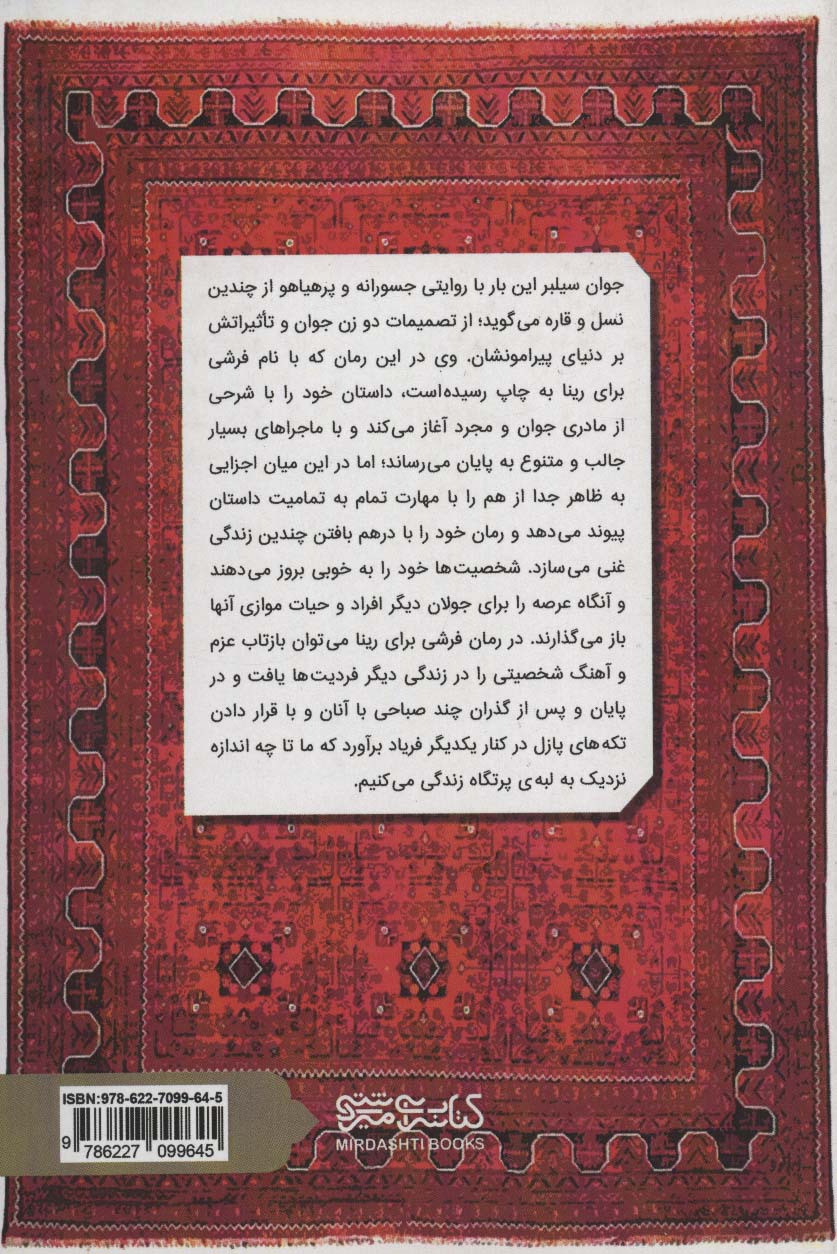 جوان سیلبر این بار با روایتی جسورانه و پرهیاهو از چندین
نسل و قاره می‌گوید؛ از تصمیمات دو زن جوان و تأثیراتش
بر دنیای پیرامونشان. وی در این رمان که با نام فرشی
برای رینا به چاپ رسیده‌است، داستان خود را با شرحی
از مادری جوان و مجرد آغاز می‌کند و با ماجراهای بسیار
جالب و متنوع به پایان می‌رساند؛ اما در این میان اجزایی
به ظاهر جدا از هم را با مهارت تمام به تمامیت داستان
پیوند می‌دهد و رمان خود را با درهم بافتن چندین زندگی
غنی می‌سازد. شخصیت‌ها خود را به خوبی بروز می‌دهند
و آنگاه عرصه را برای جولان دیگر افراد و حیات موازی آنها
باز می‌گذارند. در رمان فرشی برای رینا می‌توان بازتاب عزم
و آهنگ شخصیتی را در زندگی دیگر فردیت‌ها یافت و در
پایان و پس از گذران چند صباحی با آنان و با قرار دادن
تکه‌های پازل در کنار یکدیگر فریاد برآورد که ما تا چه اندازه
نزدیک به لبه‌ی پرتگاه زندگی می‌کنیم.
کتابسرای میردشتی
MIRDASHTI BOOKS
ISBN:978-622-7099-64-5
9 786227 099645